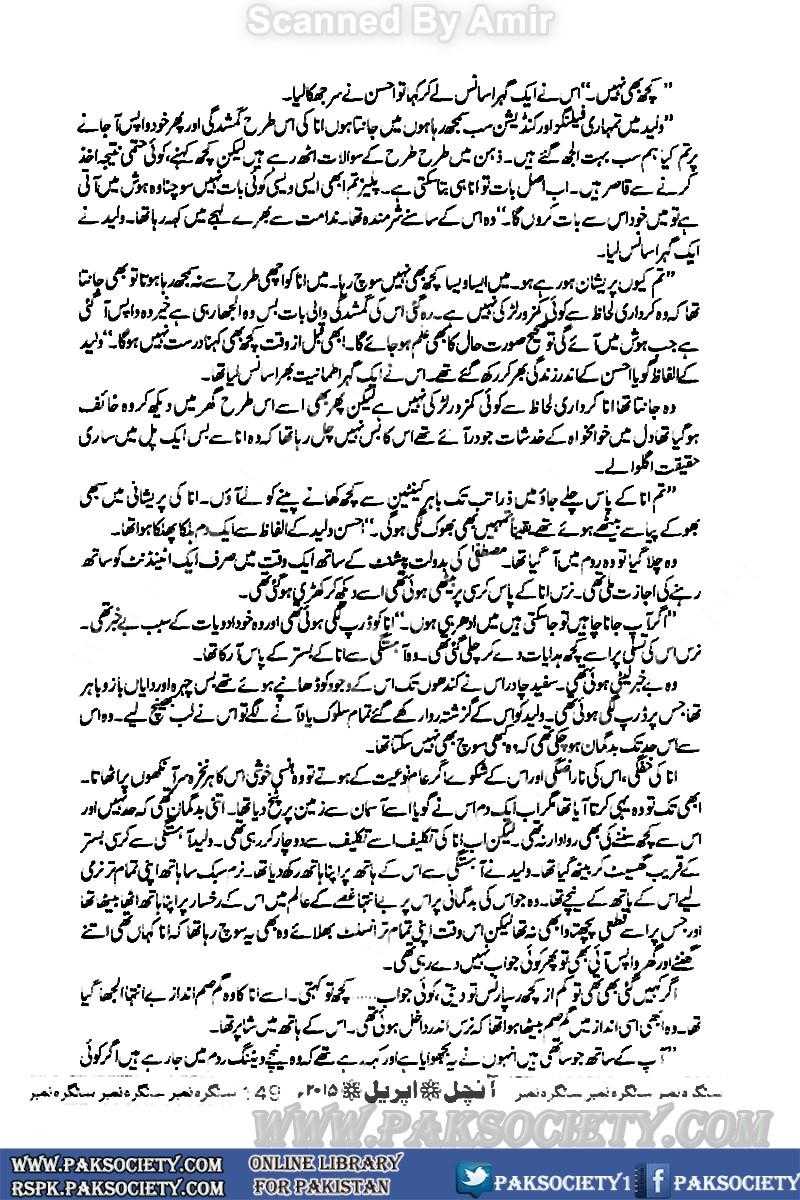 Scanned By Amir
"کچھ بھی نہیں۔" اس نے ایک گہرا سانس لے کر کہا تو احسن نے سر جھکا لیا۔
"ولید میں تمہاری فیلنگز اور کنڈیشن سب سمجھ رہا ہوں میں جانتا ہوں انا کی اس طرح گمشدگی اور پھر خود واپس آ جانے
پر تم کیا ہم سب بہت الجھ گئے ہیں۔ ذہن میں طرح طرح کے سوالات اٹھ رہے ہیں لیکن کچھ کہنے، کوئی حتمی نتیجہ اخذ
کرنے سے قاصر ہیں۔ اب اصل بات تو انا ہی بتا سکتی ہے۔ پلیز تم ابھی ایسی ویسی کوئی بات نہیں سوچنا وہ ہوش میں آتی
ہے تو میں خود اس سے بات کروں گا۔" وہ اس کے سامنے شرمندہ تھا۔ ندامت سے بھرے لہجے میں کہہ رہا تھا۔ ولید نے
ایک گہرا سانس لیا۔
"تم کیوں پریشان ہو رہے ہو۔ میں ایسا ویسا کچھ بھی نہیں سوچ رہا۔ میں انا کو اچھی طرح سے نہ سمجھ رہا ہوتا تو بھی جانتا
تھا کہ وہ کرداری لحاظ سے کوئی کمزور لڑکی نہیں ہے۔ رہ گئی اس کی گمشدگی والی بات بس وہ الجھا رہی ہے خیر وہ واپس آ گئی
ہے جب ہوش میں آئے گی تو صحیح صورت حال کا بھی علم ہو جائے گا۔ ابھی قبل از وقت کچھ بھی کہنا درست نہیں ہوگا۔" ولید
کے الفاظ گویا احسن کے اندر زندگی بھر کر رکھ گئے تھے۔ اس نے ایک گہرا طمانیت بھرا سانس لیا تھا۔
وہ جانتا تھا انا کرداری لحاظ سے کوئی کمزور لڑکی نہیں ہے لیکن پھر بھی اسے اس طرح گھر میں دیکھ کر وہ خائف
ہو گیا تھا دل میں خوامخواہ کے خدشات جو در آئے تھے اس کا بس نہیں چل رہا تھا کہ وہ انا سے بس ایک پل میں ساری
حقیقت اگلوا لے۔
"تم انا کے پاس چلے جاؤ میں ذرا تب تک باہر کینٹین سے کچھ کھانے پینے کو لے آؤں۔ انا کی پریشانی میں سبھی
بھوکے پیاسے بیٹھے ہوئے تھے یقیناً تمہیں بھی بھوک لگی ہوگی۔" احسن ولید کے الفاظ سے ایک دم ہلکا پھلکا ہوا تھا۔
وہ چلا گیا تو وہ روم میں آ گیا تھا۔ مصطفیٰ کی بدولت پیشنٹ کے ساتھ ایک وقت میں صرف ایک اٹینڈنٹ کو ساتھ
رہنے کی اجازت ملی تھی۔ نرس انا کے پاس کرسی پر بیٹھی ہوئی تھی اسے دیکھ کر کھڑی ہو گئی تھی۔
"اگر آپ جانا چاہیں تو جا سکتی ہیں میں ادھر ہی ہوں۔" انا کو ڈرپ لگی ہوئی تھی اور وہ خود ادویات کے سبب بے خبر تھی۔
نرس اس کی تسلی پر اسے کچھ ہدایات دے کر چلی گئی تھی۔ وہ آہستگی سے انا کے بستر کے پاس آ رکا تھا۔
وہ بے خبر لیٹی ہوئی تھی۔ سفید چادر اس نے کندھوں تک اس کے وجود کو ڈھانپے ہوئے تھے بس چہرہ اور دایاں بازو باہر
تھا جس پر ڈرپ لگی ہوئی تھی۔ ولید کو اس کے گزشتہ روا رکھے گئے تمام سلوک یاد آنے لگے تو اس نے لب بھینچ لیے۔ وہ اس
سے اس حد تک بدگمان ہو چکی تھی کہ وہ کبھی سوچ بھی نہیں سکتا تھا۔
انا کی خفگی، اس کی ناراضگی اور اس کے شکوے اگر عام نوعیت کے ہوتے تو وہ ہنسی خوشی اس کا ہر نخرہ سر آنکھوں پر اٹھاتا۔
ابھی تک تو وہ یہی کرتا آیا تھا مگر اب ایک دم اس نے گویا اسے آسمان سے زمین پر پٹخ دیا تھا۔ اتنی بدگمان تھی کہ حد نہیں اور
اس سے کچھ سننے کی بھی روادار نہ تھی۔ لیکن اب انا کی تکلیف اسے تکلیف سے دوچار کر رہی تھی۔ ولید آہستگی سے کرسی بستر
کے قریب گھسیٹ کر بیٹھ گیا تھا۔ ولید نے آہستگی سے اس کے ہاتھ پر اپنا ہاتھ رکھ دیا تھا۔ نرم سبک سا ہاتھ اپنی تمام تر نرمی
لیے اس کے ہاتھ کے نیچے تھا۔ وہ جو اس کی بدگمانی پر اس پر بے انتہا غصے کے عالم میں اس کے رخسار پر اپنا ہاتھ اٹھا بیٹھا تھا
اور جس پر اسے قطعی پچھتاوا بھی نہ تھا لیکن اس وقت اپنی تمام تر انسلٹ بھلائے وہ بھی یہ سوچ رہا تھا کہ انا کہاں تھی اتنے
گھنٹے اور گھر واپس آئی بھی تو پھر کوئی جواب نہیں دے رہی تھی۔
اگر کہیں گئی بھی تھی تو کم از کچھ رسپانس تو دیتی، کوئی جواب..... کچھ تو کہتی۔ اسے انا کا وہ گم صم انداز بے انتہا الجھا گیا
تھا۔ وہ ابھی اسی انداز میں گم صم بیٹھا ہوا تھا کہ نرس اندر داخل ہوئی تھی۔ اس کے ہاتھ میں شاپر تھا۔
"آپ کے ساتھ جو ساتھی ہیں انہوں نے یہ بھجوایا ہے اور کہہ رہے تھے کہ وہ نیچے ویٹنگ روم میں جا رہے ہیں اگر کوئی
سالگرہ نمبر سالگرہ نمبر سالگرہ نمبر آنچل اپریل ۲۰۱۵ء 149 سالگرہ نمبر سالگرہ نمبر سالگرہ نمبر
WWW.PAKSOCIETY.COM
WWW.PAKSOCIETY.COM ONLINE LIBRARY PAKSOCIETY1 PAKSOCIETY
RSPK.PAKSOCIETY.COM FOR PAKISTAN